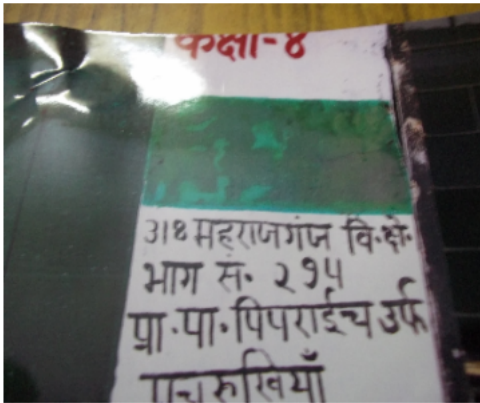 कक्षा-४
318 महराजगंज वि॰क्षे॰
भाग सं॰ २१५
प्रा॰पा॰पिपराईच उर्फ
पचरुखियाँ